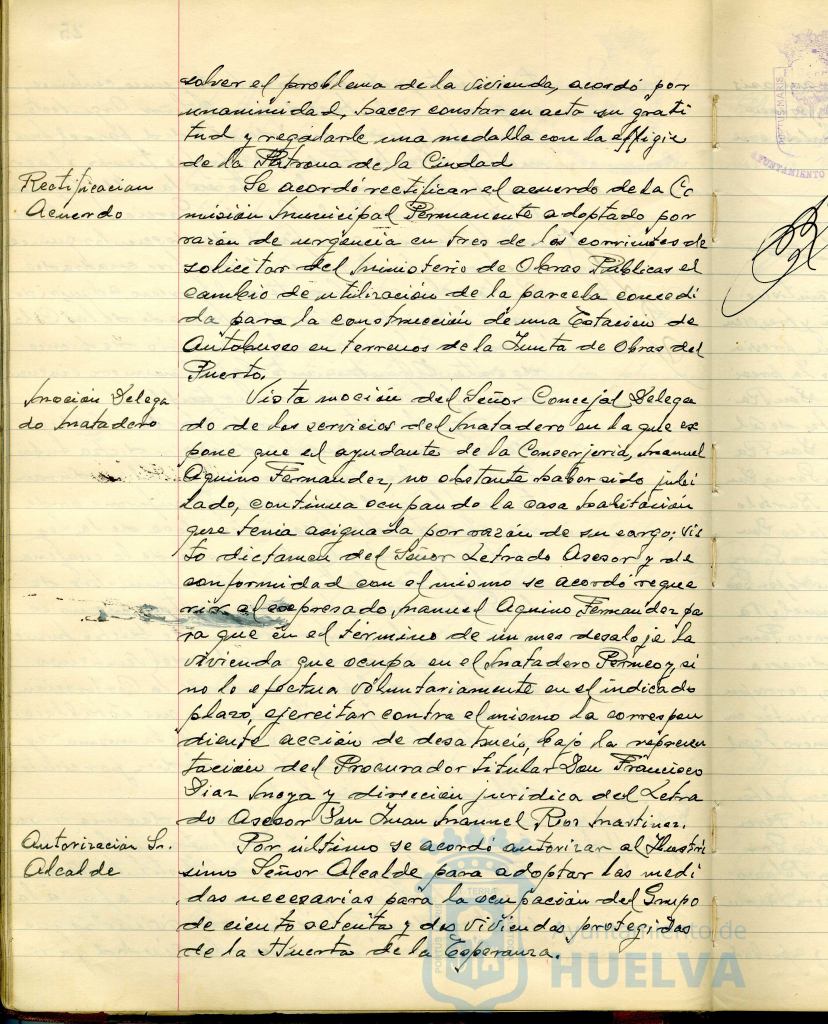 solver el problema de la vivienda, acordó por
unanimidad, hacer constar en acta su grati
tud y regalarle una medalla con la effigie
de la Patrona de la Ciudad
Rectificacion
Acuerdo
Se acordó rectificar el acuerdo de la Co
misión Municipal Permanente adoptado por
razón de urgencia en tres de los corrientes de
solicitar del Ministerio de Obras Públicas el
cambio de utilización de la parcela concedi
da para la construcción de una Estación de
Autobuses en terrenos de la Junta de Obras del
Puerto.
Moción Delega
do Matadero
Vista moción del Señor Concejal Delega
do de los servicios del Matadero en la que ex
pone que el ayudante de la Conserjeria, Manuel
Aquino Fernandez, no obstante haber sido jubi
lado, continua ocupando la casa habitación
que tenia asignada por razón de su cargo; vis
to dictamen del Señor Letrado Asesor y de
conformidad con el mismo se acordó reque
rir al expresado Manuel Aquino Fernandez pa
ra que en el término de un mes desaloje la
vivienda que ocupa en el Matadero y, si
no lo efectua voluntariamente en el indicado
plazo, ejercitar contra el mismo la correspon
diente acción de desahucio, bajo la represen
tación del Procurador titular Don Francisco
Diaz Moya y dirección juridica del Letra
do Asesor Don Juan Manuel Ros Martinez.
Autorización Sr.
Alcalde
Por último se acordó autorizar al Ilustri
simo Señor Alcalde para adoptar las medi
das necesarias para la ocupación del Grupo
de ciento setenta y dos viviendas protegidas
de la Huerta de la Esperanza.
Ayuntamiento de
HUELVA